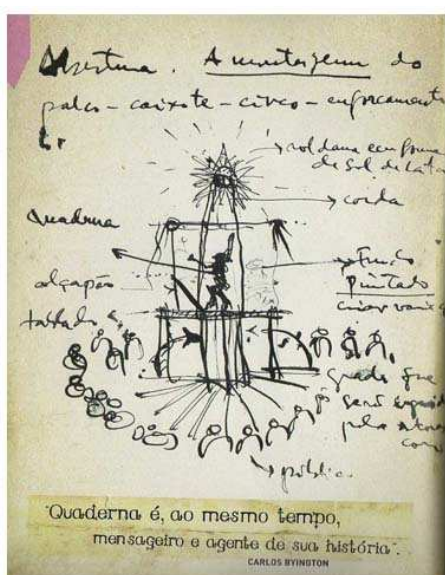 Abertura. A montagem do
palco - caixote - circo - enforcamento
roldana em forma
de sol de lata
corda
Quaderna
Fundo
alçapão
pintado
criar
tablado
grade que
será
pela
público
"Quaderna é, ao mesmo tempo,
mensageiro e agente de sua história".
CARLOS BYINGTON